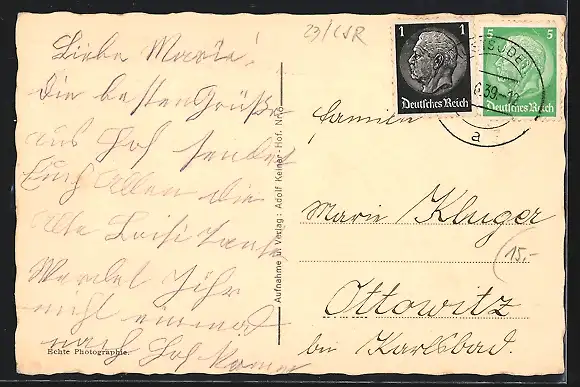 Liebe Marie!
die besten Grüße
aus Hof sendet
Euch Allen die
Alte Luisi Tante
Werdet Ihr
nicht einmal
nach Hof kommen
Echte Photographie.
Aufnahme u. Verlag: Adolf Keiner-Hof.
23/CSR
1 1
Deutsches Reich
5 5
Deutsches Reich
39-1
a
Familie
Marie Kluger
15,-
Ottowitz
bei Karlsbad.